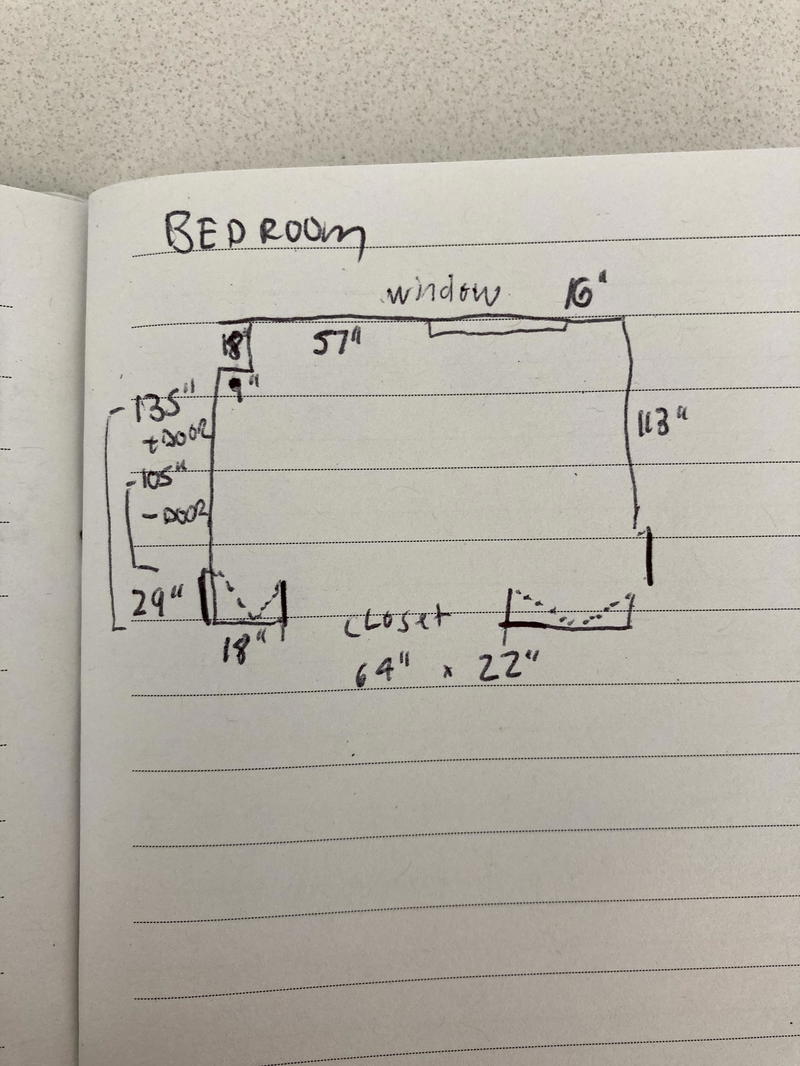 BEDROOM
window 16"
18" 57"
9"
135"
+DOOR
113"
105"
-DOOR
29"
18"
CLOSET
64" x 22"